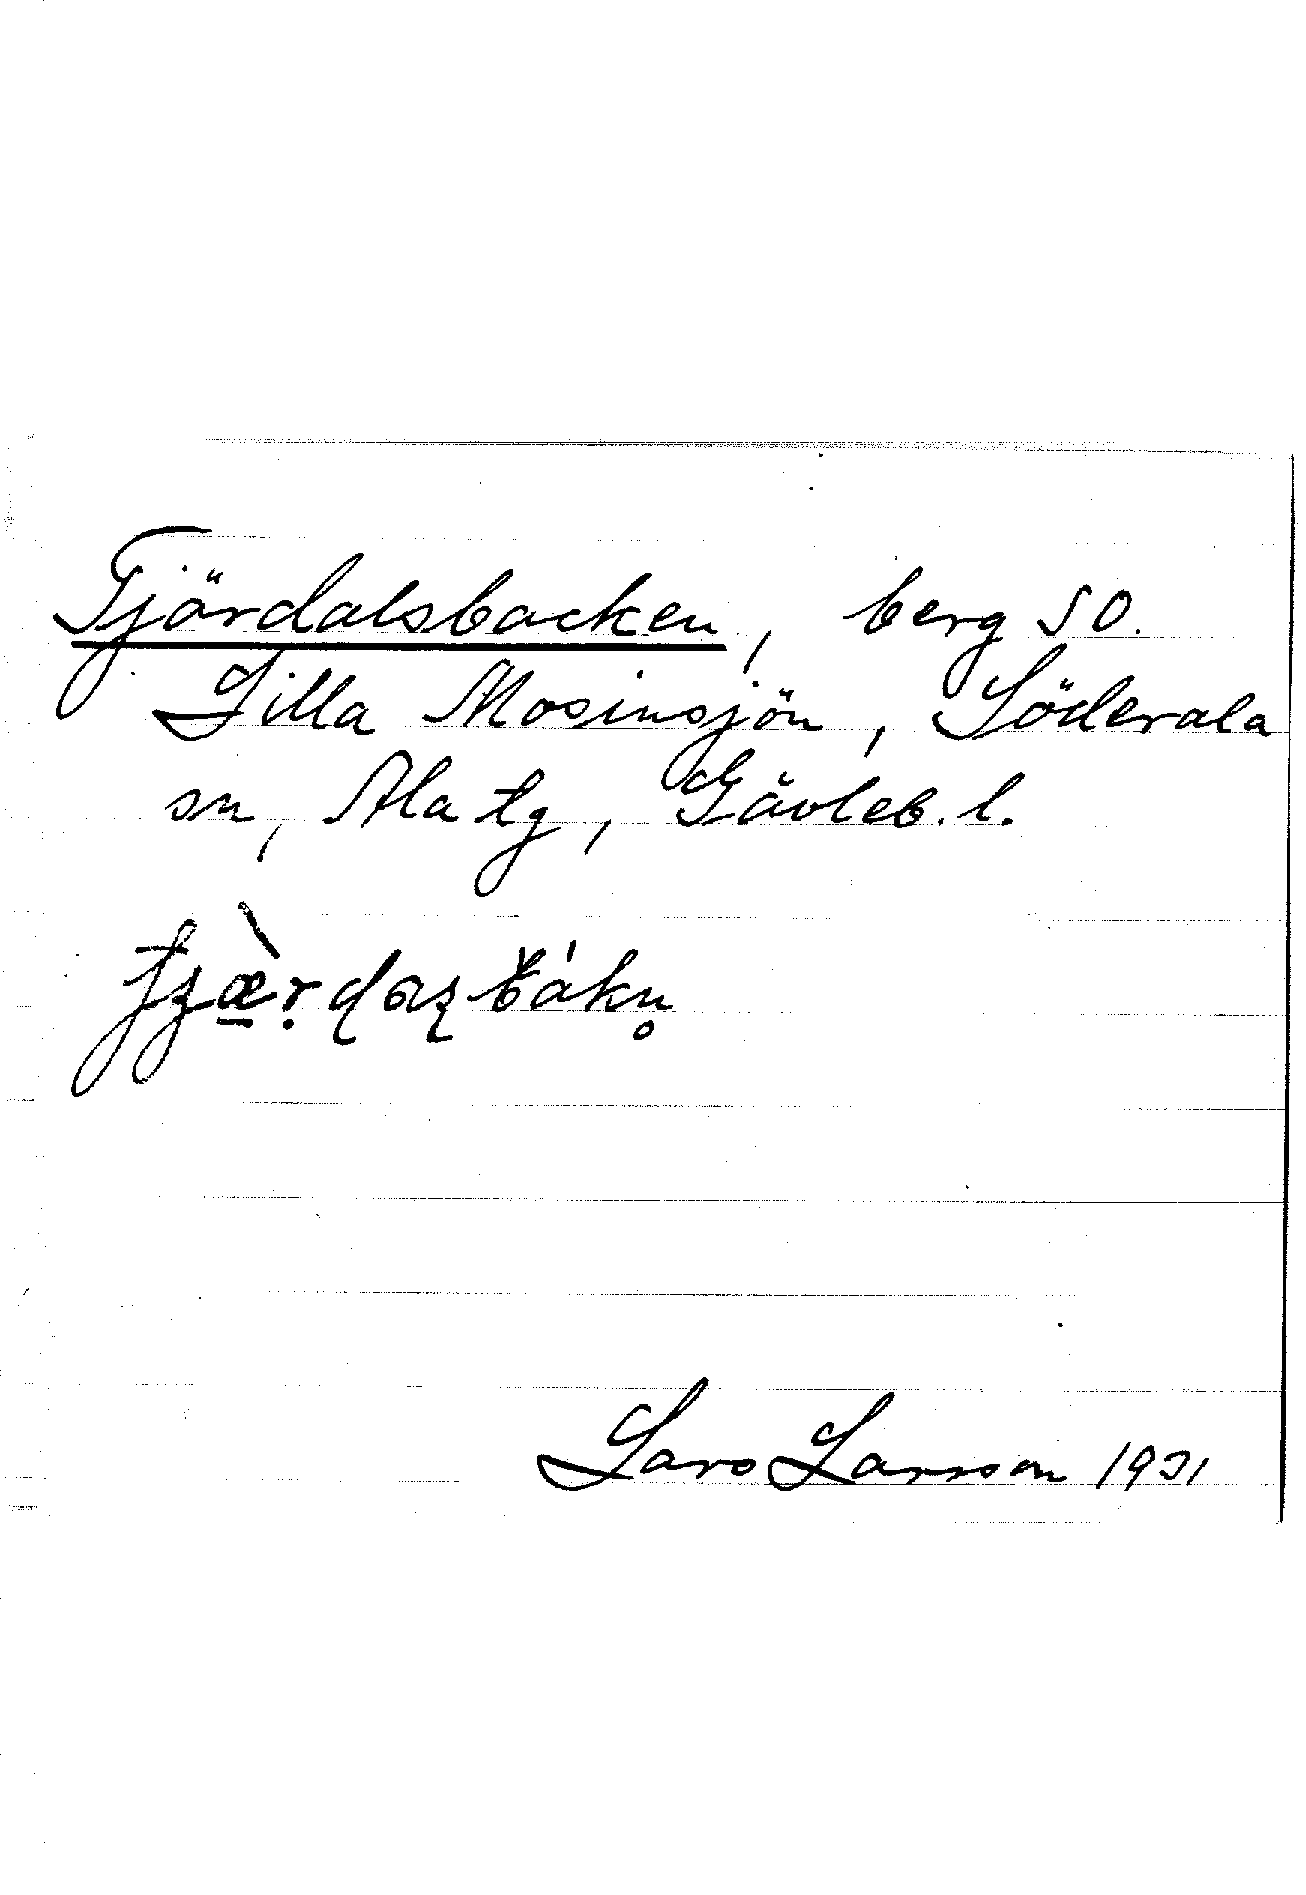 Tjärdalsbacken, berg SO.
Lilla Mosinsjön, Söderala
sn, Ala tg, Gävleb. l.
Lars Larsson 1931